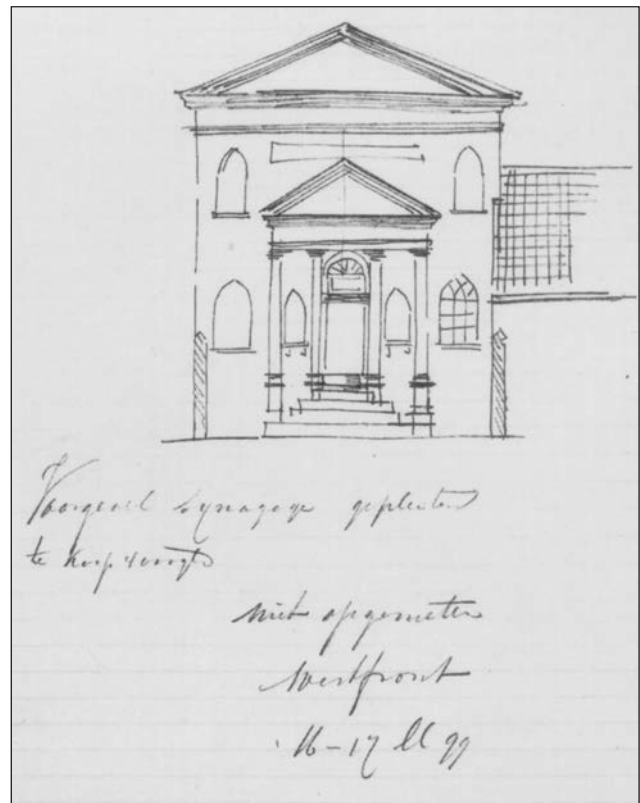 Voorgevel Synagoge gepleisterd
te koop
niet opgemeten
Westfront
16-17 99